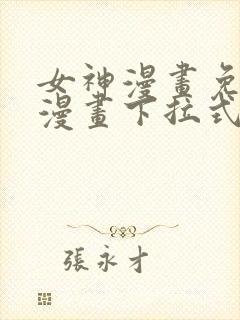 女神漫畫免
漫畫下拉式
張永才